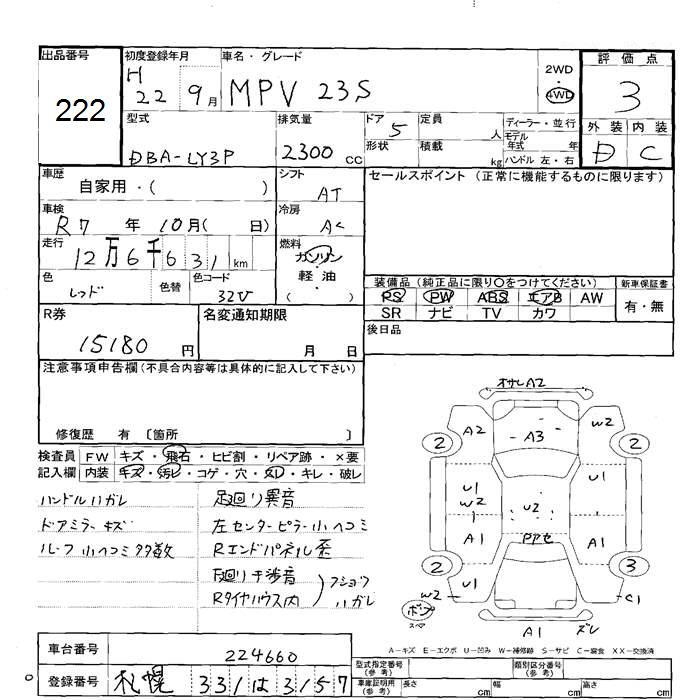 出品番号
222
初度登録年月
H 22 9月
車名・グレード
MPV 23S
2WD
・
4WD
評価点
3
外装 内装
D C
型式
DBA-LY3P
排気量
2300 CC
ドア 5
形状
定員 人
積載 kg
ディーラー・並行
モデル年式 年
ハンドル 左・右
車歴
自家用・( )
シフト
AT
セールスポイント(正常に機能するものに限ります)
車検
R7 年 10月( 日)
冷房
AC
走行
12万6千631km
燃料
ガソリン
軽・油
( )
色
レッド
色替
色コード
32V
装備品(純正品に限り○をつけてください)
PS PW ABS エアB AW
SR ナビ TV カワ
新車保証書
有・無
R券
15180 円
名変通知期限
月 日
後日品
注意事項申告欄(不具合内容等は具体的に記入して下さい)
修復歴 有 〔箇所 〕
検査員記入欄
FW キズ・飛石・ヒビ割・リペア跡・×要
内装 キズ・汚レ・コゲ・穴・スレ・キレ・破レ
ハンドルハガレ
ドアミラーキズ
ルーフ小ヘコミ多数
足廻り異音
左センターピラー小ヘコミ
Rエンドパネル歪
下廻り干渉音
Rタイヤハウス内
フショク
ハガレ
オサレA2
A2 A3 W2
2 2
U1 W2 U2 U1
A1 PアセA1
2 3
U1 W2 C1
ボン
スペア
A1 ズレ
A-キズ E-エクボ U-凹み W-補修跡 S-サビ C-腐食 XX-交換済
車台番号
224660
登録番号
札幌 331 は 3157
型式指定番号(参考)
類別区分番号(参考)
車庫証明用(参考)
長さ cm 幅 cm 高さ cm